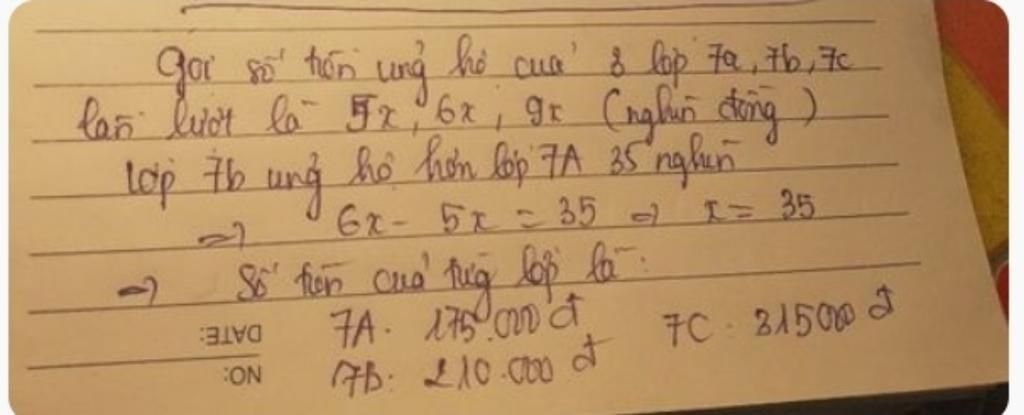 Gọi số tiền ủng hộ của 3 lớp 7a, 7b, 7c
lần lượt là 5x, 6x, 9x (nghìn đồng)
lớp 7b ủng hộ hơn lớp 7A 35 nghìn
=> 6x - 5x = 35 => x = 35
=> Số tiền của từng lớp là:
7A: 175.000 đ 7C: 315000 đ
7B: 210.000 đ
DATE:
NO: